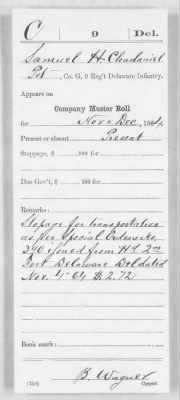 C 9 Del.
Samuel H. Clendaniel
Pvt, Co. G, 9 Reg't Delaware Infantry.
Appears on
Company Muster Roll
for Nov & Dec, 1864
Present or absent Present
Stoppage, $ 100 for
Due Gov't, $ 100 for
Remarks:
Stopage for transportation
as per Special Orders No
390 issued from Hd. Qrs
Fort Delaware Del dated
Nov. 4" 64 $2.72
Book mark:
B. Wagner
(358) Copyist.